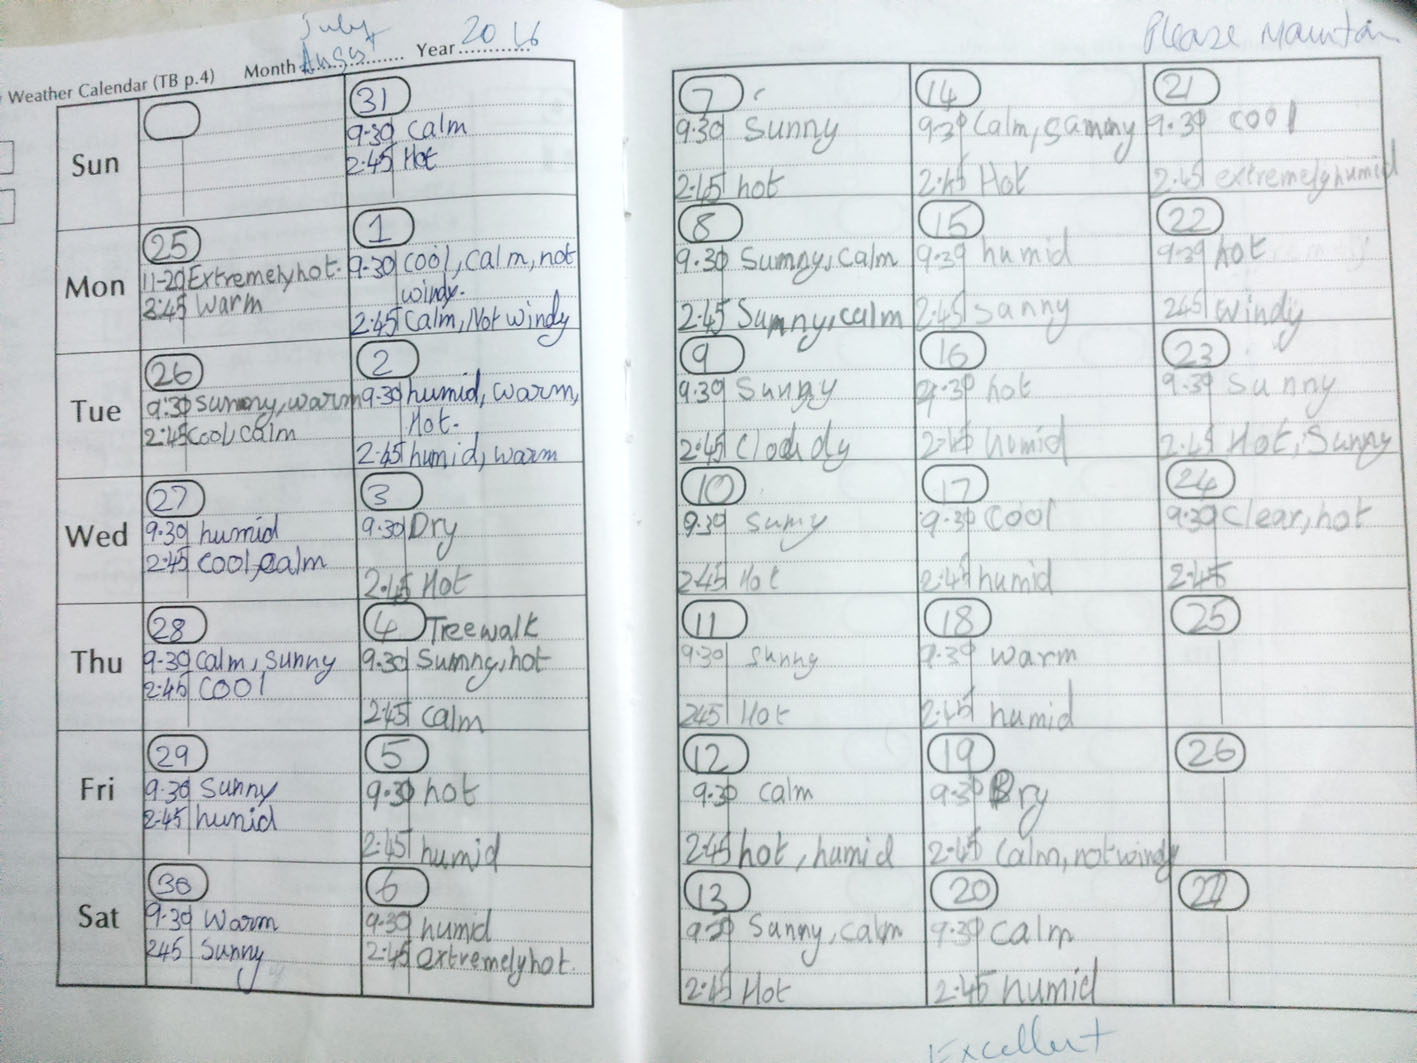 July
August
Please Maintain
Weather Calendar (TB p.4) Month Year 2016
Sun
31
9.30 calm
2.45 Hot
Mon
25
11-20 Extremely hot.
3:45 warm
1
9.30 cool, calm, not
windy.
2.45 calm, Not windy
Tue
26
9:30 sunny, warm
2:45 cool, calm
2
9.30 humid, warm,
Hot.
2.45 humid, warm
Wed
27
9.30 humid
2.45 cool, calm
3
9.30 Dry
2.45 Hot
Thu
28
9.30 calm, sunny
2.45 cool
4 Treewalk
9.30 Sunny, hot
2.45 calm
Fri
29
9.30 Sunny
2.45 humid
5
9.30 hot
2.45 humid
Sat
30
9.30 Warm
245 Sunny
6
9.30 humid
2.45 extremely hot.
7
9.30 Sunny
2.45 hot
14
9.30 Calm, sammy
2.45 Hot
21
9.30 cool
2.45 extremely humid
8
9.30 Sumny, calm
2.45 Sunny, calm
15
9.30 humid
2.45 sanny
22
9.30 hot
245 windy
9
9.30 Sunny
2.45 Cloudy
16
9.30 hot
2.45 humid
23
9.30 Sunny
2.45 Hot, Sunny
10
9.30 sumy
2.45 Hot
17
9.30 cool
2.45 humid
24
9.30 clear, hot
2.45
11
9.30 sunny
245 Hot
18
9.30 warm
2.45 humid
25
12
9.30 calm
2.45 hot, humid
19
9.30 Dry
2.45 Calm, not windy
26
13
9.30 Sunny, calm
2.45 Hot
20
9.30 calm
2.45 humid
27
Excellent